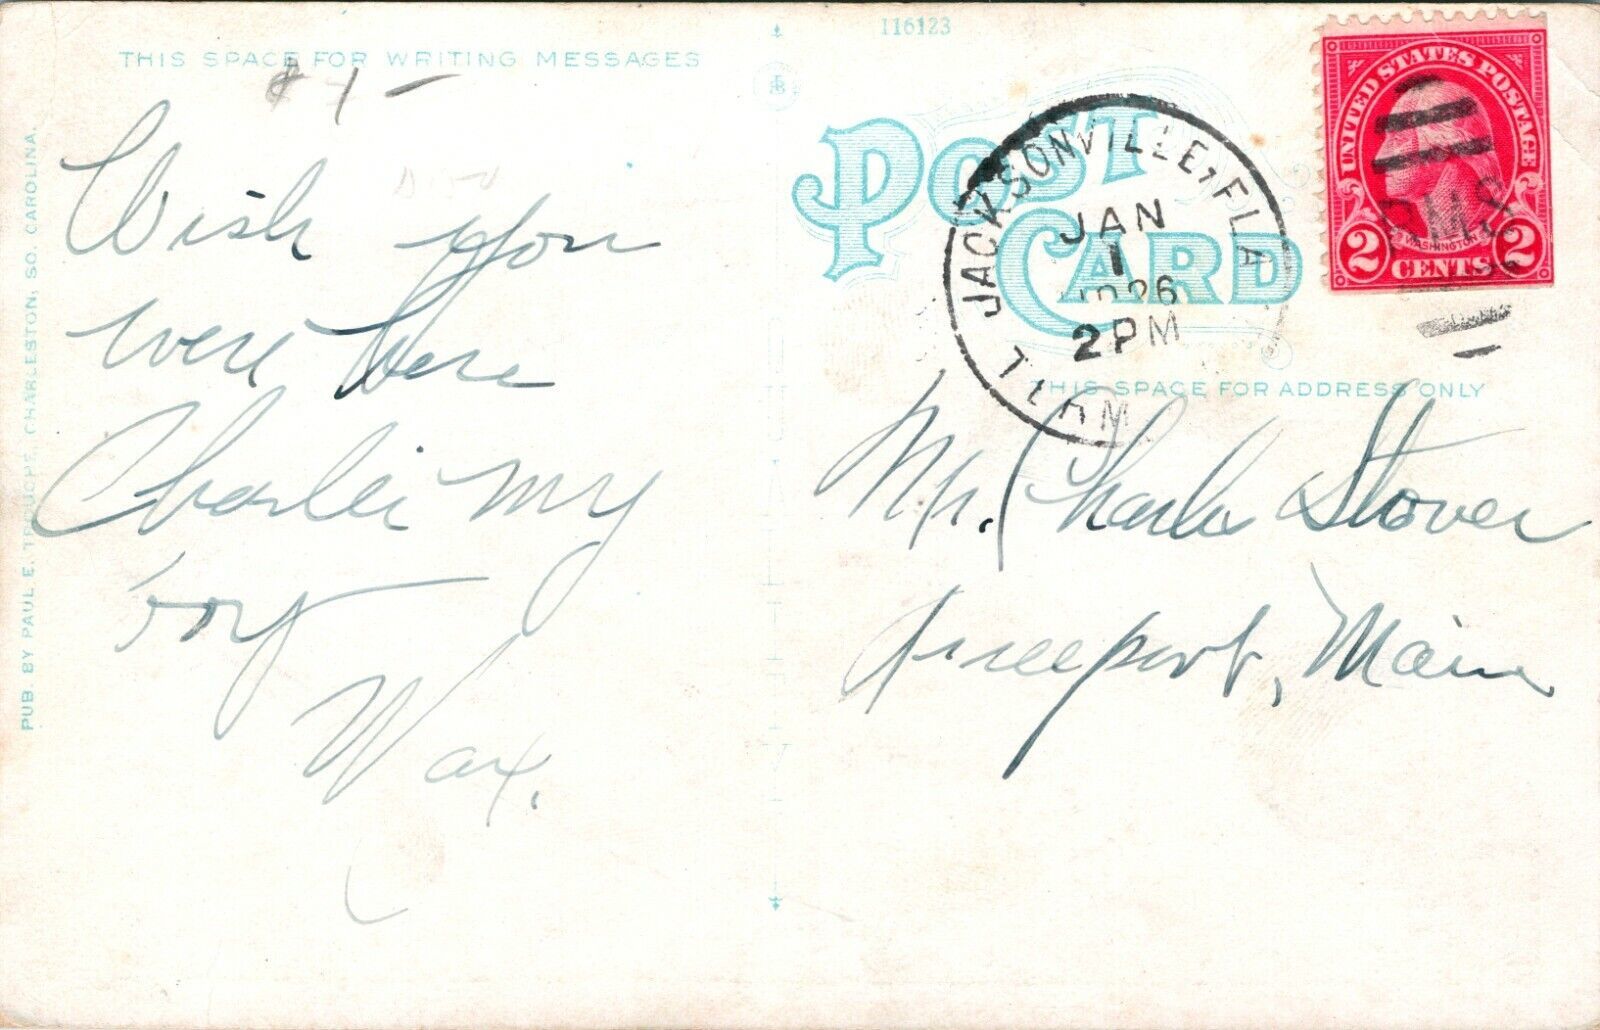 THIS SPACE FOR WRITING MESSAGES
$1-
Wish you
were here
Charlie my
boy
Wax.
PUB. BY PAUL E. TROUCHE, CHARLESTON, SO. CAROLINA.
116123
POST CARD
JACKSONVILLE, FLA.
JAN
1
1926
2 PM
UNITED STATES POSTAGE
WASHINGTON
2 CENTS 2
THIS SPACE FOR ADDRESS ONLY
Mr. Charles Stover
Freeport, Maine